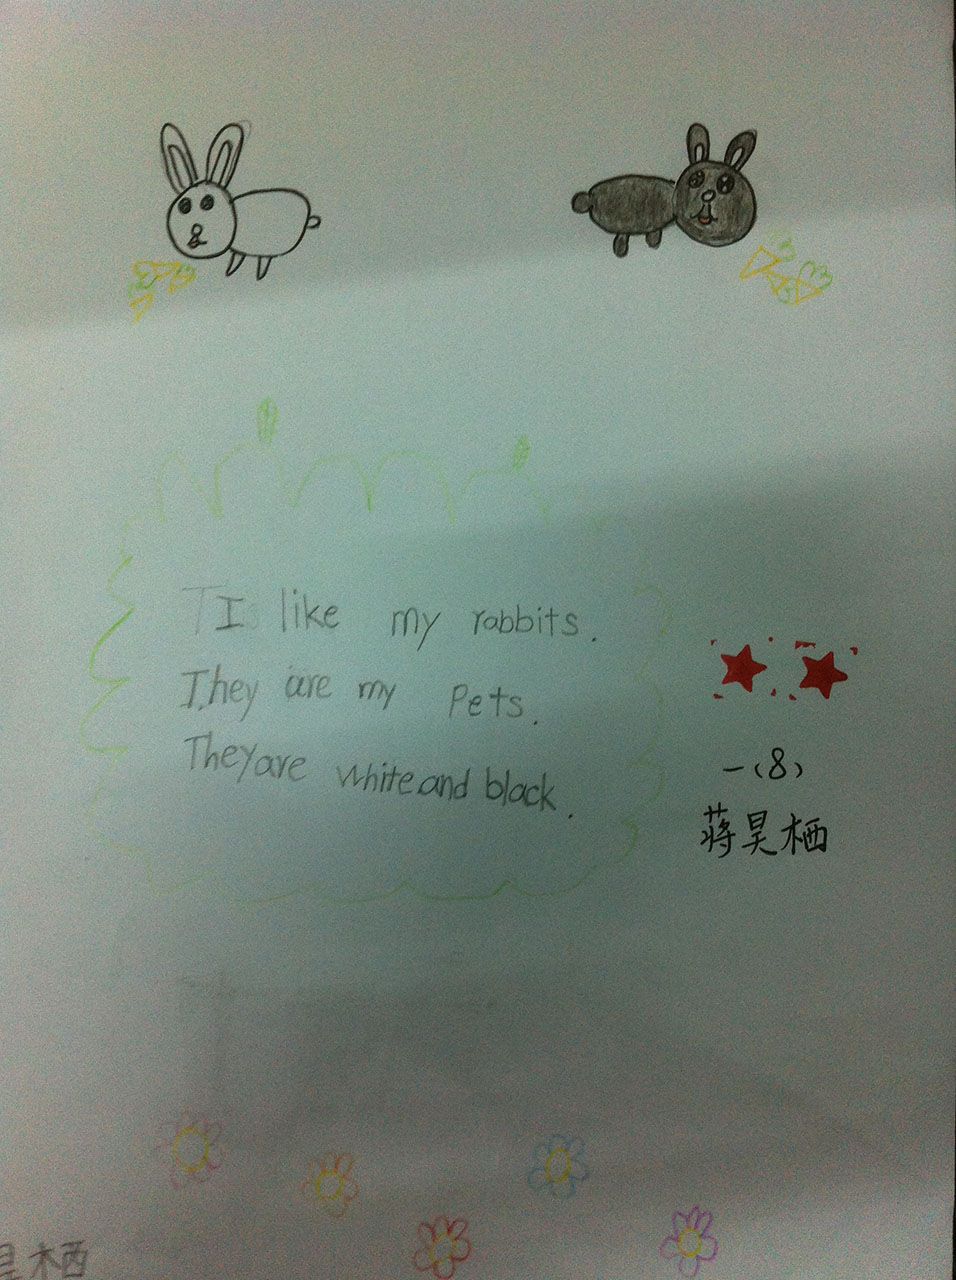 I like my rabbits.
They are my Pets.
They are white and black.
一(8)
蒋昊栖
昊栖